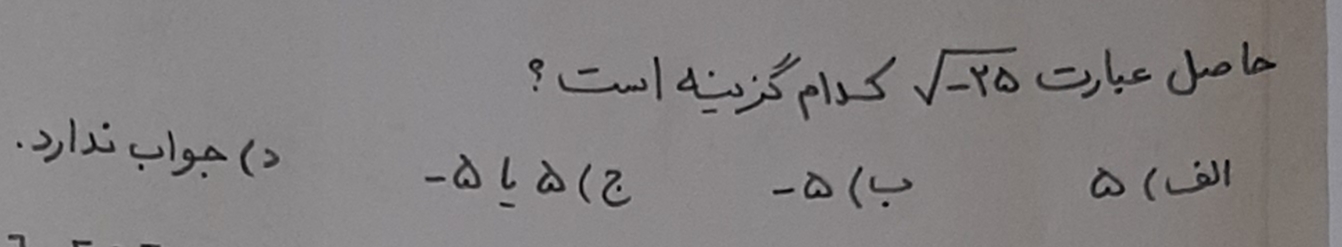 حاصل عبارت √-۲۵ کدام گزینه است؟
الف) ۵ ب) -۵ ج) ۵ یا -۵ د) جواب ندارد.